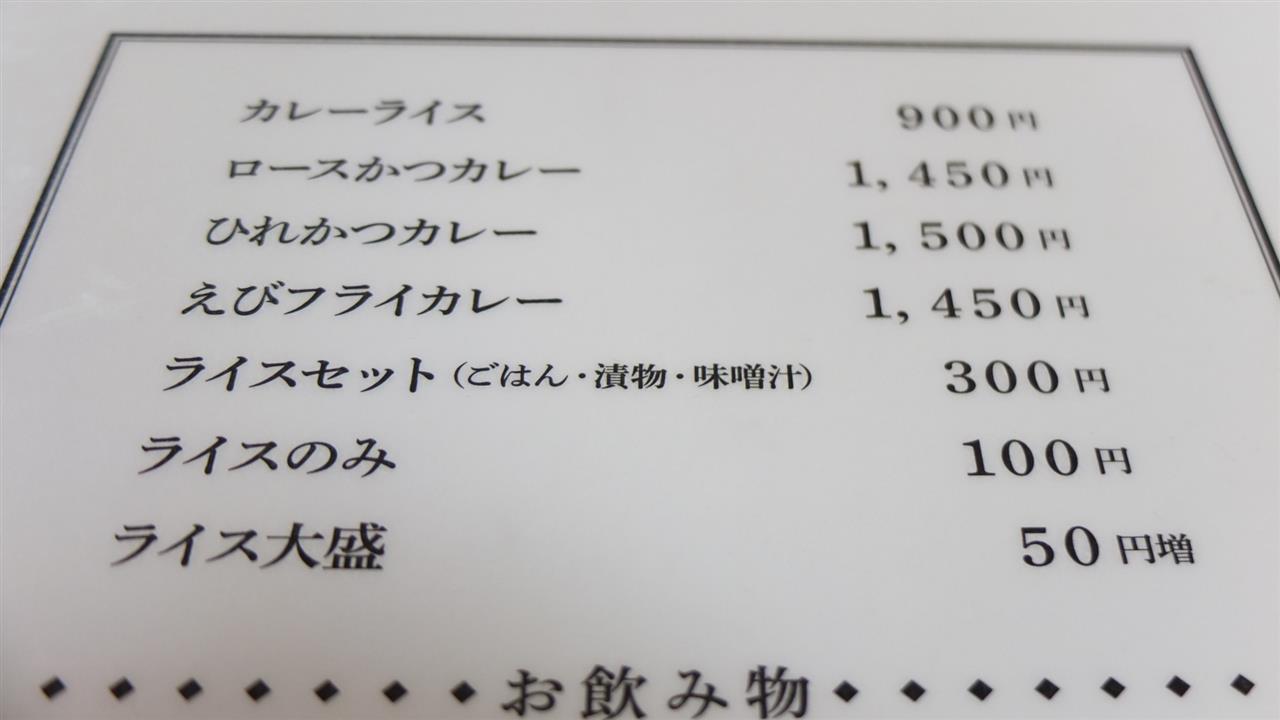 カレーライス 900円
ロースかつカレー 1,450円
ひれかつカレー 1,500円
えびフライカレー 1,450円
ライスセット（ごはん・漬物・味噌汁） 300円
ライスのみ 100円
ライス大盛 50円増
◆◆◆◆◆◆◆お飲み物◆◆◆◆◆◆◆